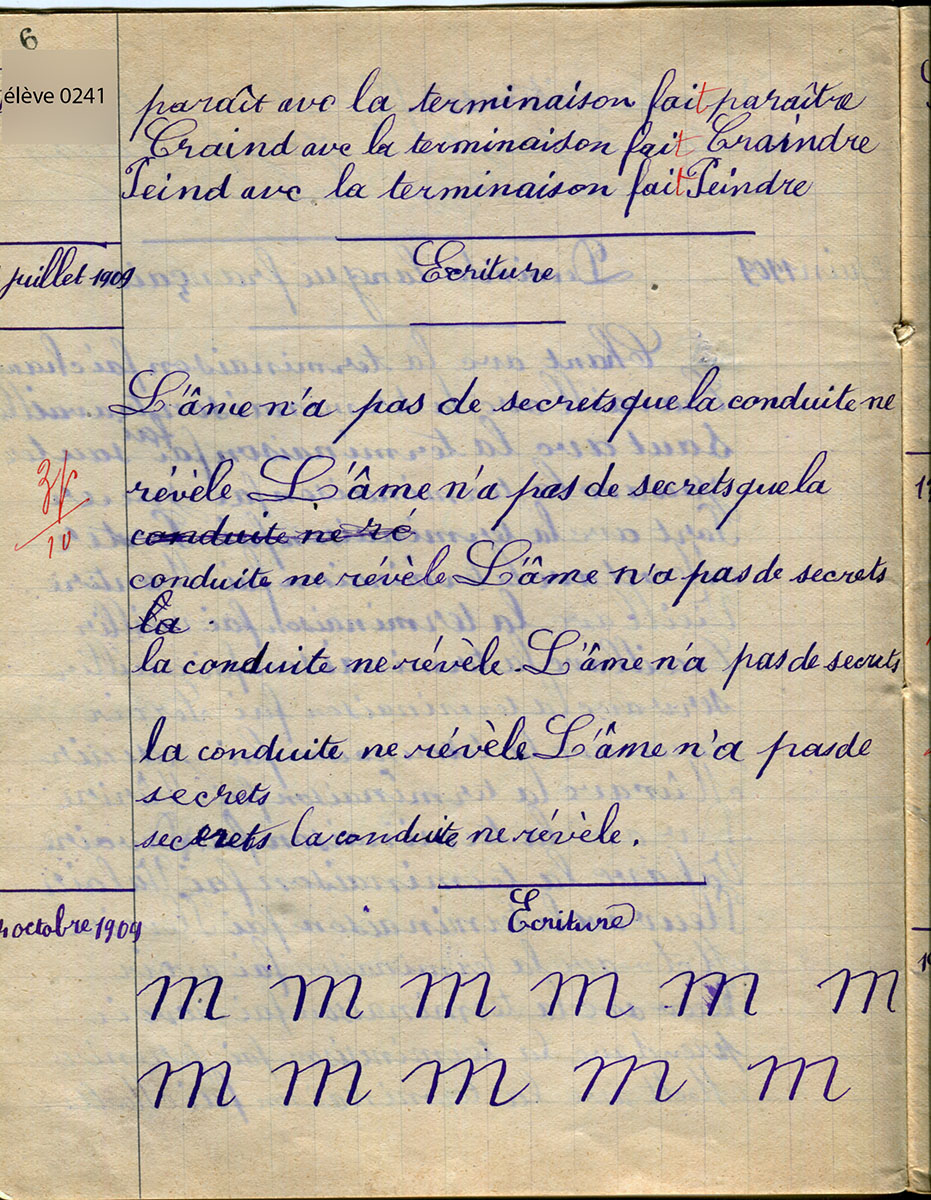 6
élève 0241
paraît avc la terminaison fait paraître
Craind avc la terminaison fait Craindre
Peind avc la terminaison fait Peindre
juillet 1909
Ecriture
L'âme n'a pas de secrets que la conduite ne
révèle L'âme n'a pas de secrets que la
conduite ne ré
conduite ne révèle L'âme n'a pas de secrets
la
la conduite ne révèle. L'âme n'a pas de secrets
la conduite ne révèle L'âme n'a pas de
secrets
secrets la conduite ne révèle.
octobre 1909
Ecriture
m m m m m m
m m m m m